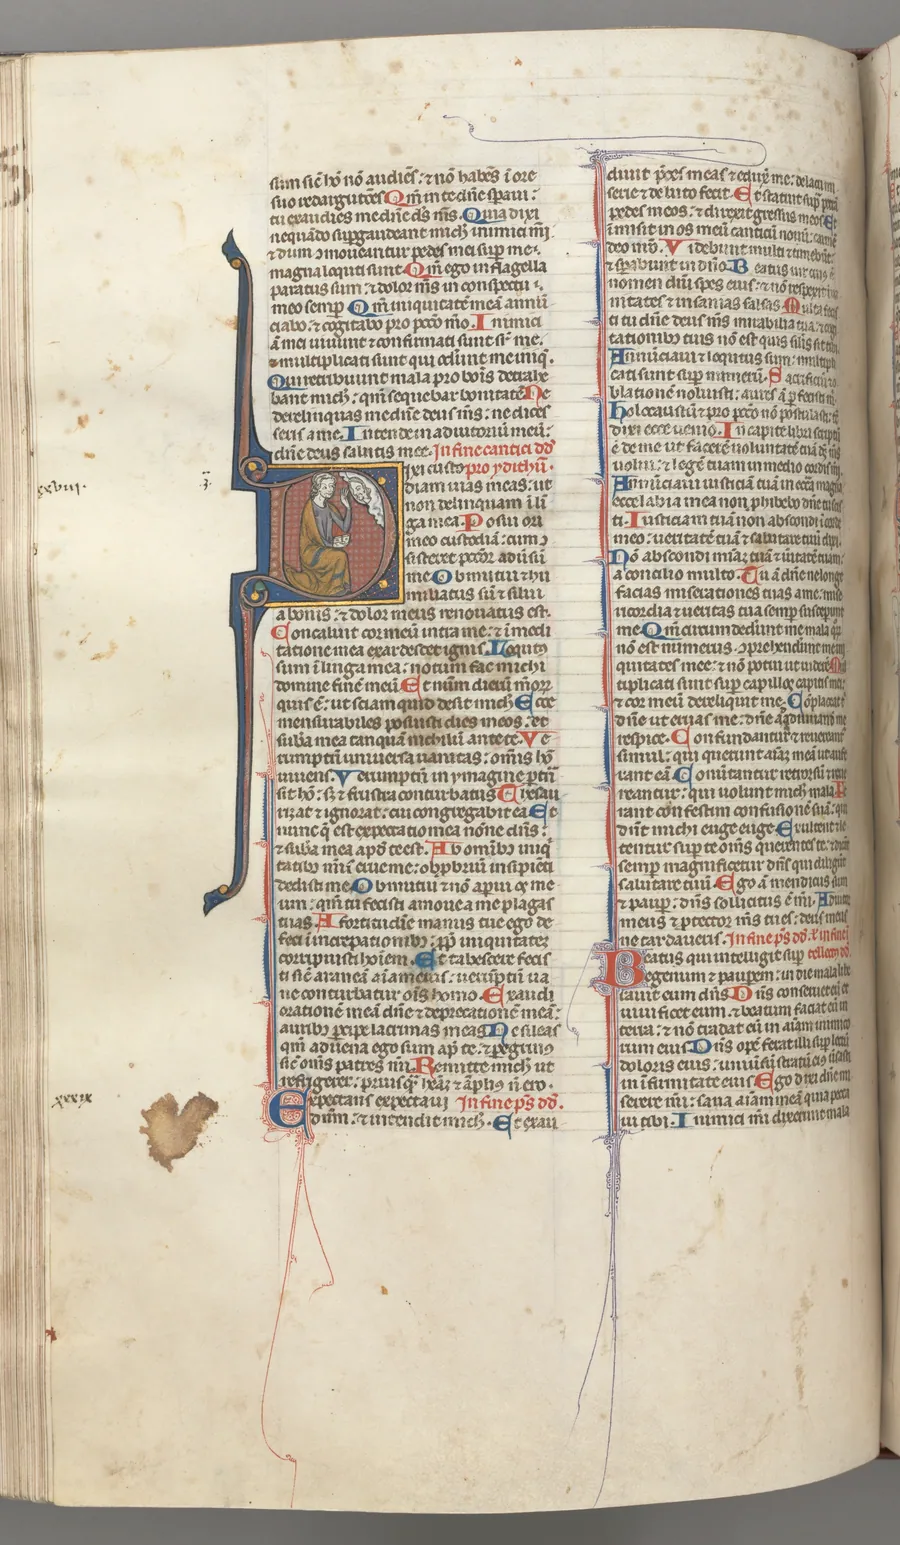 sum sič hō nō audiēs: ⁊ nō habēs ī ore
suo redargutōēs Qm̄ in te dn̄e sp̄aui:
tu exaudies me dn̄e ds̄ m̄s. Quia dixi
nequādo suꝑgaudeant mich̄ inimici m̄i
⁊ dum ɔmoueantur pedes mei sup me
magna locuti sunt. Qm̄ ego in flagella
paratus sum: ⁊ dolor m̄s in conspectu
meo semꝑ Qm̄ iniquitatē meā annū
ciabo: ⁊ cogitabo pro pccō mō. Inimici
ā mei uiuunt ⁊ confirmati sunt sr̄ me.
⁊ multiplicati sunt qui odeunt me iniq̄.
Qui retribuunt mala pro bonis detrahe
bant mich̄: qm̄ sequebar bonitatē Ne
derelinquas me dn̄e deus m̄s: ne disces
seris a me. Intende in adiutoriū meū:
dn̄e deus salutis mee. In fine cantici dd̄
ixi custo pro ydithū.
diam uias meas: ut
non delinquam ī li
gua mea. Posui ori
meo custodiā: cum ɔ
sisteret pccōr adūsū
me Obmutui ⁊ hu
miliatus sū ⁊ silui
a bonis: ⁊ dolor meus renouatus est.
Concaluit cor meū intra me: ⁊ ī medi
tatione mea exardescet ignis. Locutꝯ
sum ī lingua mea: notum fac michi
domine finē meū Et num̄ dierū m̄orꝝ
quis ē: ut sciam quid desit mich̄ Ecce
mensurabiles posuisti dies meos: et
suba mea tanquā nichilū ante te. Ve
rumptn̄ uniuersa uanitas: omīs hō
uiuens. Verumptn̄ in ymagine ꝑtn̄
sit hō: sꝫ ⁊ frustra conturbatus Thesau
rizat ⁊ ignorat: cui congregabit ea Et
nunc q̄ est expectatio mea nōne dn̄s:
⁊ suba mea apd̄ te est. Ab omibꝫ iniq
tatibꝫ m̄is erue me: obp̄briū insipiēti
dedisti me Obmutui ⁊ nō aꝑui os me
um: qm̄ tu fecisti amoue a me plagas
tuas A fortitudīe manus tue ego de
feci ī increpationibꝫ: pp̄ iniquitatez
corripuisti hoīem. Et tabescere fecis
ti sič araneā aīam eius: uerūptn̄ ua
ne conturbatur oīs homo. Exaudi
orationē meā dn̄e ⁊ deprecationē meā:
auribꝫ ꝑcipe lacrimas meas Ne sileas
qm̄ aduena ego sum ap̄ te: ⁊ ꝑegrinꝯ
sič om̄s patres m̄i. Remitte mich̄ ut
refrigerer: priusq̄
Expectans expectaui In fine ps̄ dd̄.
dn̄m: ⁊ intendit mich̄. Et exau
xxxviii.
xxxix
diuit p̄ces meas ⁊ eduxͭ me: de lacu mi
serie ⁊ de luto fecis. Et statuit suꝑ petrā
pedes meos: ⁊ direxit gressus meos Et
īmisit in os meū canticū nouū: carmē
deo n̄ro. Videbunt multi ⁊ timebūt:
⁊ sp̄abunt in dn̄o Beatus uir cuiꝯ ē
nomen dn̄i spes eius: ⁊ nō respexit in
nitates ⁊ insanias falsas Multa fecis
ti tu dn̄e deus m̄s mirabilia tua: ⁊ cogi
tationibꝫ tuis nō est quis silīs sit tibi
Annūciaui ⁊ locutus sum: multipli
cati sunt suꝑ numerū. Sacrificiū ⁊ o
blationē noluisti: aures ā ꝑfecisti m̄
holocaustū ⁊ pro pccō nō postulasti: tc̄
dixi ecce uenio. In capite libri scriptū
ē de me ut facerē uoluntatē tuā ds̄ m̄s
uolui: ⁊ legē tuam in medio cordis mī.
Annūciaui iusticiā tuā in eccā magna
ecce labia mea non ꝓhibebo dn̄e tu scis
ti. Iusticiam tuā non abscondi ī corde
meo: ueritatē tuā ⁊ salutare tuū dixi.
Nō abscondi miāꝫ tuā ⁊ ūitatē tuam:
a concilio multo. Tu ā dn̄e ne longe
facias miserationes tuas a me: mise
ricordia ⁊ ueritas tua semꝑ susceꝑunt
me Qm̄ circumdedūnt me mala q̄ꝝ
nō est numerus: ɔprehendūnt me ini
quitates mee: ⁊ nō potui ut uiderē Mul
tiplicati sunt suꝑ capillos capitis mei:
⁊ cor meū dereliquit me. Cōplaceat t̄
dn̄e ut eruas me: dn̄e ad adiuuandū me
respice. Confundantur ⁊ reuerean̄t
simul: qui querunt aīaꝫ meā ut aufe
rant eā Conūtantur retrorsū ⁊ reue
reantur: qui uolunt mich̄ mala Fe
rant confestim confusionē suā: qui
diūt michi euge euge Exultent ⁊ le
tentur suꝑ te om̄s querentes te: ⁊ dicāt
semꝑ magnificetur dn̄s qui diligūt
salutare tuū. Ego ā mendicus sum
⁊ pauꝑ: dn̄s sollicitus ē m̄i. Adiutor
meus ⁊ ꝓtector m̄s tu es: deus meus
ne tardaueris. In fine ps̄ dd̄.
Beatus qui intelligit suꝑ
egenum ⁊ pauꝑem: in die mala libe
rauit eum dn̄s Dn̄s conseruet eū et
uiuificet eum: ⁊ beatum faciat eū in
terra: ⁊ nō tradat eū in aīam inimico
rum eius Dn̄s opē ferat illi suꝑ lectū
doloris eius: uniuersū stratū eiꝯ ūsasti
in īfirmitate eius Ego dixi dn̄e mi
serere m̄i: sana aīam meā quia pecca
ui tibi. Inimici m̄i dixerunt mala